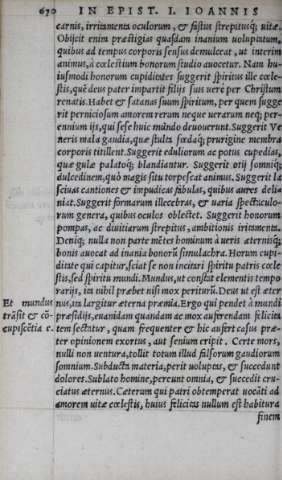 670 IN EPIST. I. IOANNIS
carnis, irritamenta oculorum, & fastus strepitusq; uitæ.
Obijcit enim præstigias quasdam inanium uoluptatum,
quibus ad tempus corporis sensus demulceat, ut interim
animus, à cœlestium bonorum studio auocetur. Nam hu-
iusmodi honorum cupidinter suggerit spiritus ille cœle-
stis, quẽ deus pater impartit filijs suis uere per Christum
renatis. Habet & satanas suum spiritum, per quem sugge
rit perniciosum amorem rerum neque uerarum neq; per-
ennium ijs, qui sese huic mũndo deuouerunt. Suggerit Ve
neris mala gaudia, quæ stulta fœdaq; prurigine membra
corporis titillent. Suggerit eduliorum ac potus cupedias,
quæ gulæ palatoq; blandiantur. Suggerit otij somniq;
dulcedinem, quò magis situ torpescat animus. Suggerit la
sciuas cantiones & impudicas fabulas, quibus aures deli-
niat. Suggerit formarum illecebras, & uaria spectaculo-
rum genera, quibus oculos oblectet. Suggerit honorum
pompas, ac diuitiarum strepitus, ambitionis irritamenta.
Deniq; nulla non parte mẽtes hominum à ueris æternisq;
bonis auocat ad inania bonorũ simulachra. Horum cupi-
ditate qui capitur, sciat se non incitari spiritu patris cœle
stis, sed spiritu mundi. Mundus, ut constat elementis tempo
rarijs, ita nihil præbet nisi mox periturũ. Deus ut est æter
Et mundus nus, ita largitur æterna præmia. Ergo qui pendet à mundi
trãsit & cõ præsidijs, euanidam quandam ac mox auferendam felicita
cupiscẽtia e. tem sectatur, quam frequenter & hic aufert casus præ-
ter opinionem exortus, aut senium eripit. Certe mors,
nulli non uentura, tollit totum illud falsorum gaudiorum
somnium. Subducta materia, perit uoluptas, & succedunt
dolores. Sublato homine, pereunt omnia, & succedit cru-
ciatus æternus. Cæterum qui patri obtemperat uocãti ad
amorem uitæ cœlestis, huius felicitas nullum est habitura
finem